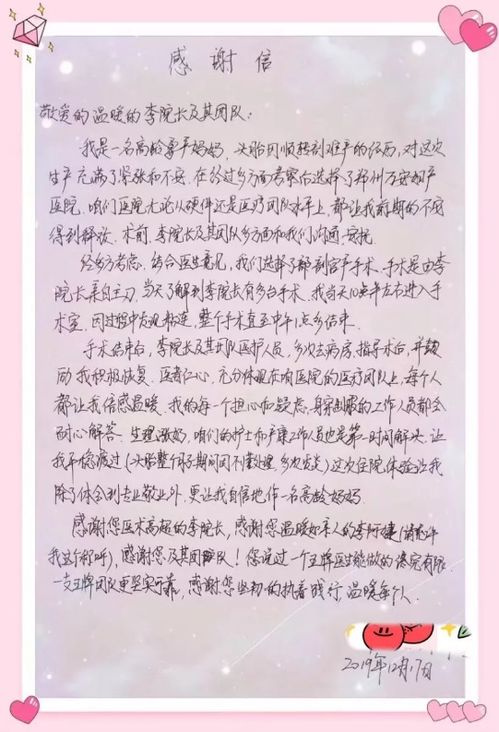 感谢信
敬爱的温暖的李院长及其团队：
我是一名高龄二胎妈妈，头胎因顺转剖难产的经历，对这次
生产充满了紧张和不安。在经过多方面考察后选择了郑州万安妇产
医院，咱们医院无论从硬件还是医疗团队水平上，都让我前期的不安
得到释放。术前，李院长及其团队多方面和我们沟通、安抚。
经多方考虑，结合医生意见，我们选择了剖宫产手术。手术是由李
院长亲自主刀，当天了解到李院长有多台手术。我当天10点半左右进入手
术室，因过程中发现粘连，整个手术直至中午1点多结束。
手术结束后，李院长及其团队医护人员，多次去病房，指导术后，并鼓
励我积极恢复。医者仁心，充分体现在咱医院的医疗团队上，每个人
都让我倍感温暖。我的每一个担心和疑虑，身穿制服的工作人员都会
耐心解答。生理涨奶，咱们的护士和产康工作人员也是第一时间解决，让
我平稳度过（头胎整个月子期间因不懂处理，多次发炎）这次住院体验让我
除了体会到专业敬业外，更让我自信地作一名高龄妈妈。
感谢您医术高超的李院长，感谢您温暖如亲人的李阿姨（请允许
我这个称呼），感谢您及其团队！您说过一个王牌医生能做的终究有限
一支王牌团队更坚实可靠，感谢您当初的执着践行，温暖每个人。
2019年12月17日